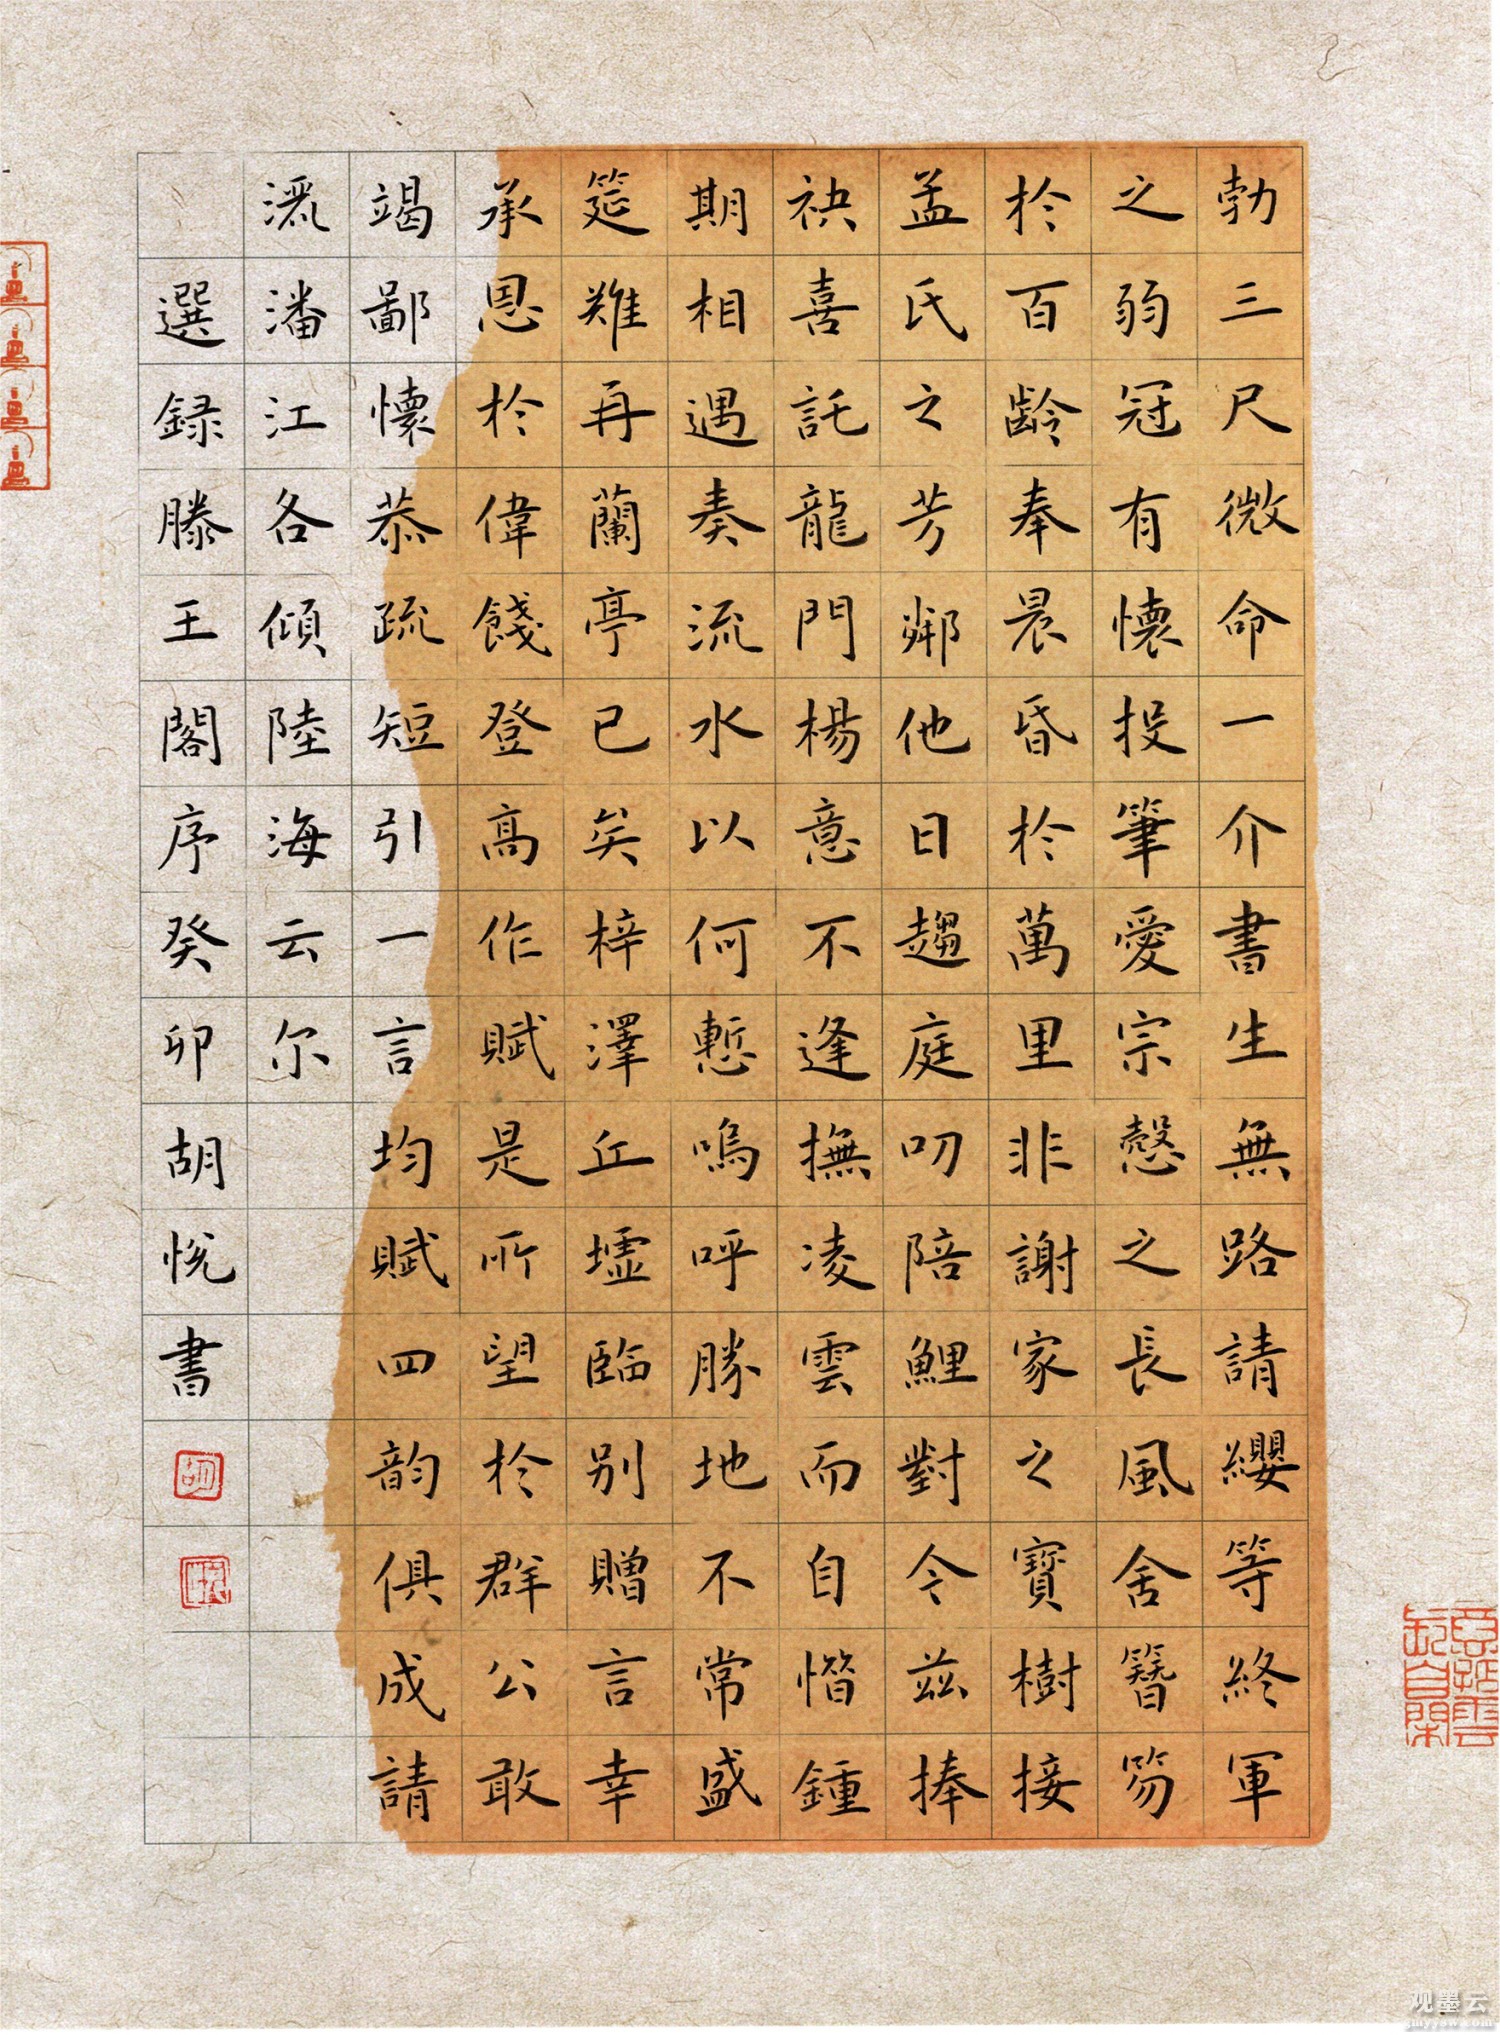 勃三尺微命一介書生無路請纓等終軍
之弱冠有懷投筆愛宗慤之長風舍簪笏
於百齡奉晨昏於萬里非謝家之寶樹接
孟氏之芳鄰他日趨庭叨陪鯉對今茲捧
袂喜託龍門楊意不逢撫凌雲而自惜鍾
期相遇奏流水以何慙嗚呼勝地不常盛
筵難再蘭亭已矣梓澤丘墟臨別贈言幸
承恩於偉餞登高作賦是所望於群公敢
竭鄙懷恭疏短引一言均賦四韵俱成請
灑潘江各傾陸海云尔
選録滕王閣序癸卯胡悅書
观墨云